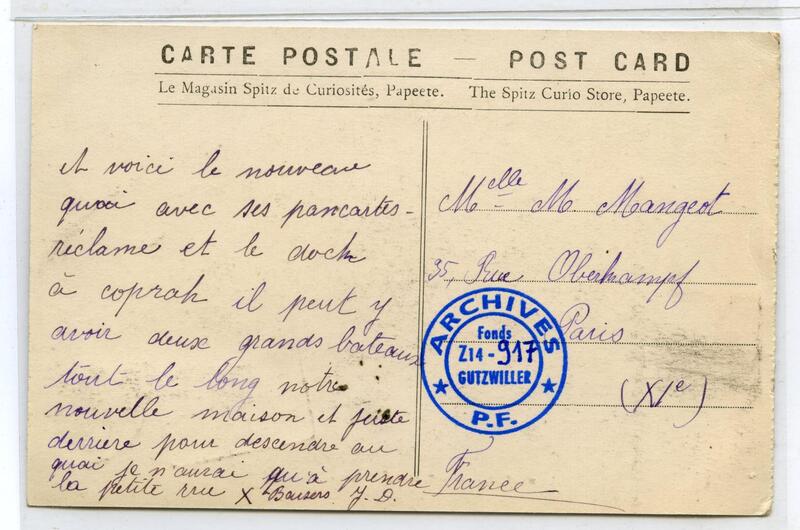 CARTE POSTALE — POST CARD
Le Magasin Spitz de Curiosités, Papeete. The Spitz Curio Store, Papeete.
et voici le nouveau
quai avec ses pancartes-
réclame et le dock
à coprah il peut y
avoir deux grands bateaux
tout le long notre
nouvelle maison et juste
derrière pour descendre au
quai je n'aurai qu'à prendre
la petite rue X Baisers J. D.
Melle M Mangeot
35, Rue Oberkampf
Paris
(XIe)
France
ARCHIVES
Fonds
Z14-917
GUTZWILLER
P.F.